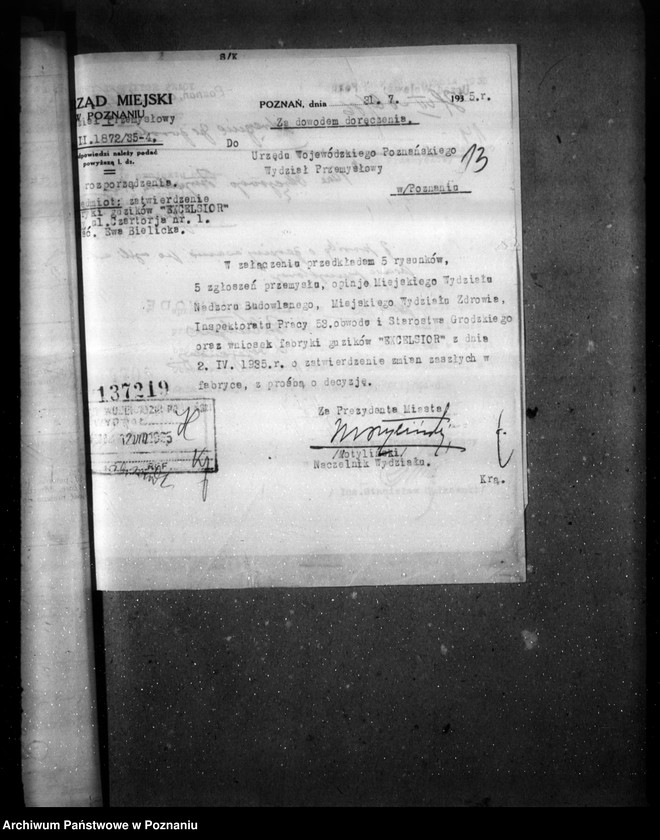 B/K
ZĄD MIEJSKI
W POZNANIU
Przemysłowy
II.1872/35-4.
dpowiedzi należy podać
powyższą l. dz.
rozporządzenia.
edmiot: zatwierdzenie
yki gazików "EXCELSIOR"
ul.Czartorja nr. 1.
Ewa Bielicka.
POZNAŃ, dnia 31. 7. 1935.r.
Za dowodem doręczenia.
Do
Urzędu Wojewódzkiego Poznańskiego
13
Wydział Przemysłowy
w/Poznaniu
W załączeniu przedkładam 5 rysunków,
5 zgłoszeń przemysłu, opinję Miejskiego Wydziału
Nadzoru Budowlanego, Miejskiego Wydziału Zdrowia,
Inspektoratu Pracy 58.obwodu i Starostwa Grodzkiego
oraz wniosek fabryki gazików "EXCELSIOR" z dnia
2. IV. 1935.r. o zatwierdzenie zmian zaszłych w
fabryce, z prośbą o decyzję.
137219
Za Prezydenta Miasta/
Motyliński
/Motyliński/
Naczelnik Wydziału.
Krą.
Archiwum Państwowe w Poznaniu